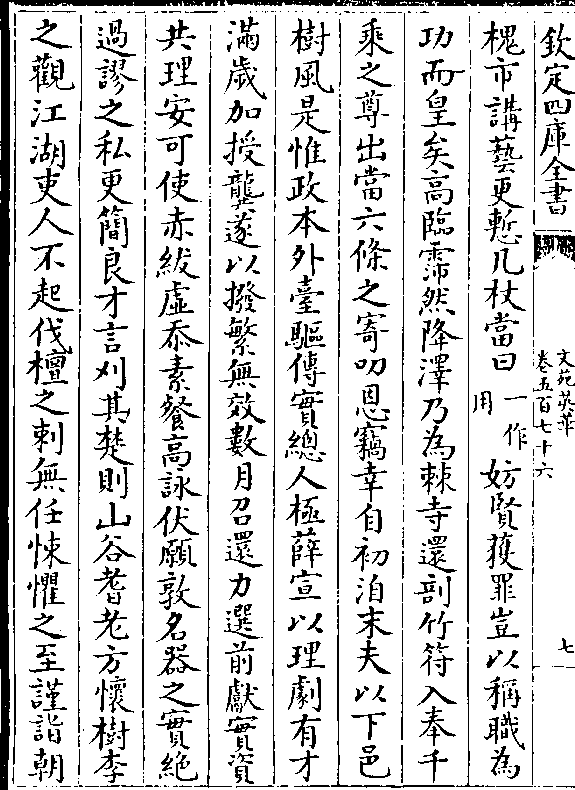 欽定四庫全書
文苑英華
卷五百七十六
七
槐市講藝更慙几杖當曰一作用妨賢獲罪豈以稱職為
功而皇矣高臨霈然降澤乃為棘寺還剖竹符入奉千
乘之尊出當六條之寄叨恩竊幸自初洎末夫以下邑
樹風是惟政本外臺驅傳實總人極薛宣以理劇有才
滿歲加授龔遂以撥繁無效數月召還力選前獻實資
共理安可使赤紱虛忝素餐高詠伏願敦名器之實絶
過謬之私更簡良才言刈其楚則山谷耆老方懷樹李
之觀江湖吏人不起伐檀之刺無任悚懼之至謹詣朝